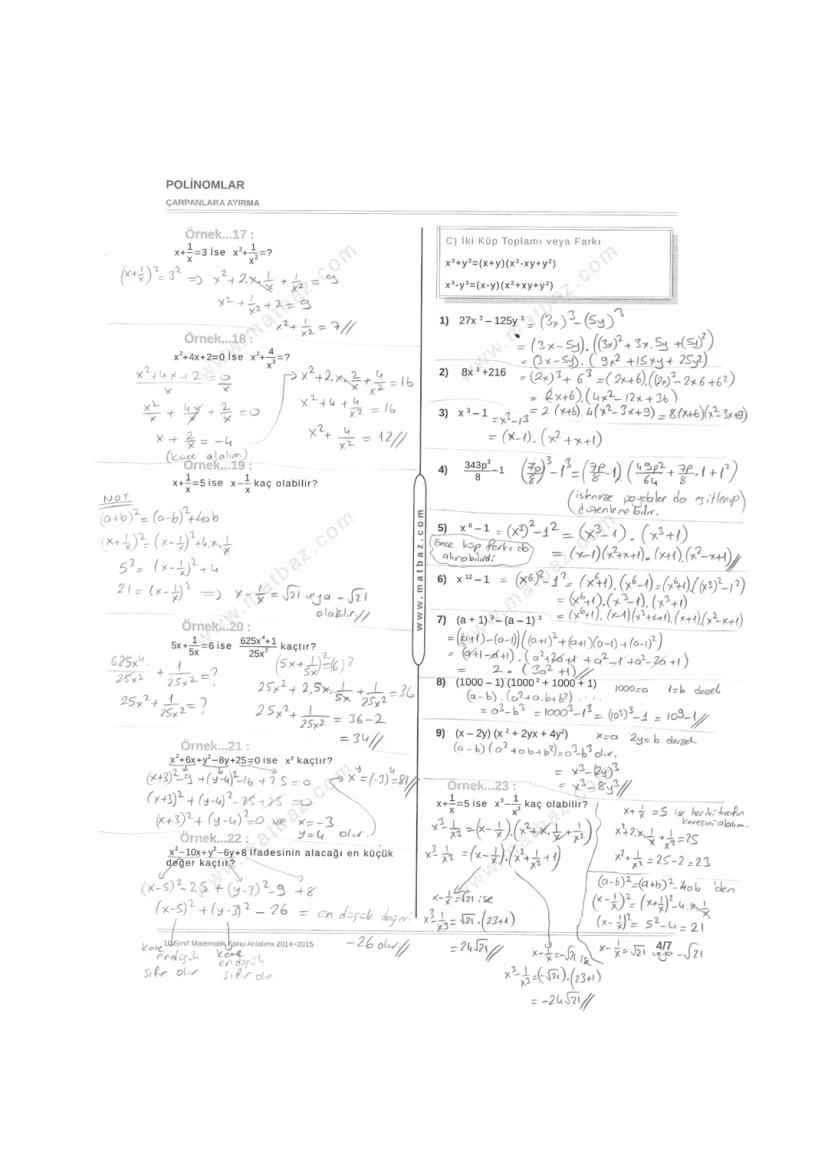 POLİNOMLAR
ÇARPANLARA AYIRMA
Örnek...17 :
x+1/x=3 ise x²+1/x²=?
(x+1/x)²=3² ⇒ x²+2.x.1/x+1/x²=9
x²+1/x²+2=9
x²+1/x²=7//
Örnek...18 :
x²+4x+2=0 İse x²+4/x²=?
(x²+4x+2)/x=0/x
x²/x+4x/x+2/x=0
x+2/x=-4
(kare alalım)
→ x²+2.x.2/x+4/x²=16
x²+4+4/x²=16
x²+4/x²=12//
Örnek...19 :
x+1/x=5 ise x−1/x kaç olabilir?
NOT
(a+b)²=(a-b)²+4ab
(x+1/x)²=(x-1/x)²+4.x.1/x
5²=(x-1/x)²+4
21=(x-1/x)² ⇒ x-1/x=√21 veya -√21
olabilir//
Örnek...20 :
5x+1/5x=6 ise (625x⁴+1)/25x² kaçtır?
625x⁴/25x²+1/25x²=?
25x²+1/25x²=?
(5x+1/5x)²=(6)²
25x²+2.5x.1/5x+1/25x²=36
25x²+1/25x²=36-2
=34//
Örnek...21 :
x²+6x+y²−8y+25=0 ise xʸ kaçtır?
(x+3)²-9+(y-4)²-16+25=0 → xʸ=(-3)⁴=81//
(x+3)²+(y-4)²-25+25=0
(x+3)²+(y-4)²=0 ise x=-3
y=4 olur.
Örnek...22 :
x²−10x+y²−6y+8 ifadesinin alacağı en küçük
değer kaçtır?
(x-5)²-25+(y-3)²-9+8
(x-5)²+(y-3)²-26 = en düşük değeri
-26 olur//
kare en düşük sıfır olur
kare en düşük sıfır olur.
10.Sınıf Matematik Konu Anlatımı 2014−2015
www.matbaz.com
C) İki Küp Toplamı veya Farkı
x³+y³=(x+y)(x²-xy+y²)
x³-y³=(x-y)(x²+xy+y²)
1) 27x³ – 125y³ = (3x)³-(5y)³
= (3x-5y).((3x)²+3x.5y+(5y)²)
= (3x-5y).(9x²+15xy+25y²)
2) 8x³+216 = (2x)³+6³=(2x+6).((2x)²-2x6+6²)
= (2x+6).(4x²-12x+36)
= 2(x+6).4(x²-3x+9)=8(x+6)(x²-3x+9)
3) x³ – 1 = x³-1³
= (x-1).(x²+x+1)
4) 343p³/8 –1 (7p/8)³-1³=(7p/8-1).(49p²/64+7p/8.1+1²)
(istenirse paydalar da eşitlenip)
düzenlenebilir.
5) x⁶ – 1 = (x³)²-1²=(x³-1).(x³+1)
önce küp farkı da alınabilirdi
= (x-1)(x²+x+1).(x+1).(x²-x+1)//
6) x¹² – 1 = (x⁶)²-1²=(x⁶+1).(x⁶-1)=(x⁶+1)((x³)²-1²)
= (x⁶+1).(x³-1).(x³+1)
= (x⁶+1).(x-1)(x²+x+1).(x+1).(x²-x+1)
7) (a + 1)³ – (a – 1)³
=((a+1)-(a-1))((a+1)²+(a+1)(a-1)+(a-1)²)
=(a+1-a+1).(a²+2a+1+a²-1+a²-2a+1)
= 2.(3a²+1)//
8) (1000 – 1) (1000² + 1000 + 1) 1000=a 1=b dersek
(a-b).(a²+a.b+b²)....
= a³-b³=1000³-1³=(10³)³-1=10⁹-1//
9) (x – 2y) (x² + 2yx + 4y²) x=a 2y=b dersek
(a-b)(a²+ab+b²)=a³-b³ olur.
= x³-(2y)³
= x³-8y³//
Örnek...23 :
x+1/x=5 ise x³−1/x³ kaç olabilir?
x³-1/x³=(x-1/x).(x²+x.1/x+1/x²)
x³-1/x³=(x-1/x).(x²+1/x²+1)
x-1/x=√21 ise
x³-1/x³=√21.(23+1)
=24√21//
x-1/x=-√21 ise
x³-1/x³=(-√21).(23+1)
=-24√21//
x+1/x=5 ise her iki tarafın
karesini alalım.
x²+2.x.1/x+1/x²=25
x²+1/x²=25-2=23
(a-b)²=(a+b)²-4ab 'den
(x-1/x)²=(x+1/x)²-4.x.1/x
(x-1/x)²=5²-4=21
x-1/x=√21 veya -√21
4/7